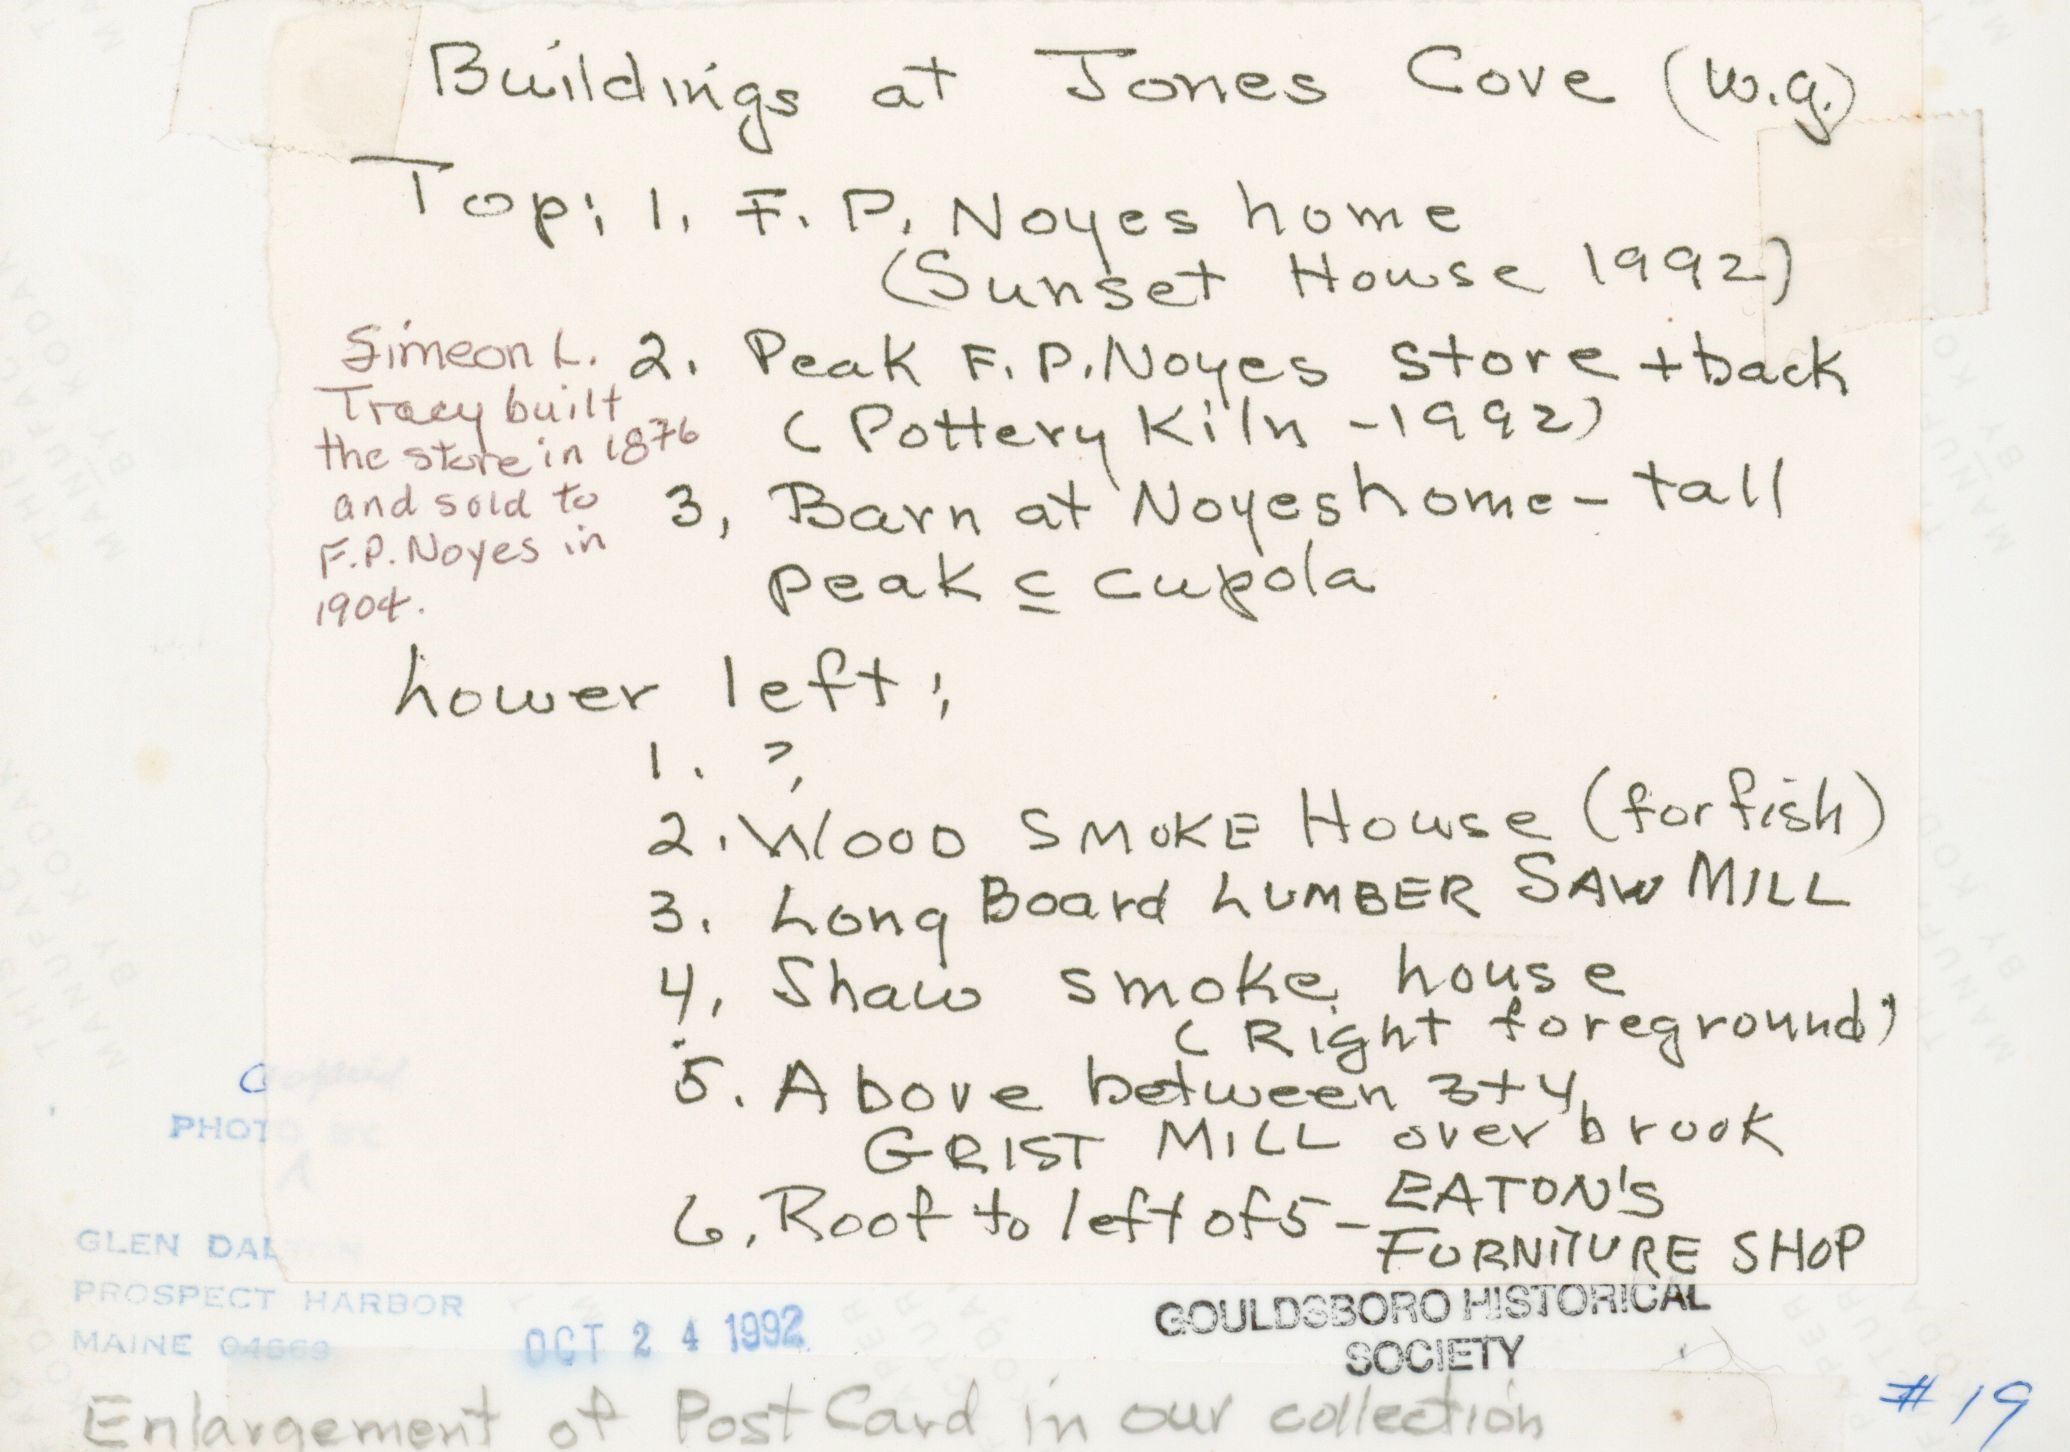 Buildings at Jones Cove (W.G.)
Top: 1. F. P. Noyes home
(Sunset House 1992)
2. Peak F. P. Noyes store + back
(Pottery Kiln - 1992)
3, Barn at Noyes home - tall
peak c cupola
Simeon L.
Tracy built
the store in 1876
and sold to
F.P. Noyes in
1904.
Lower left:
1. ?
2. WOOD SMOKE House (for fish)
3. Long Board LUMBER SAW MILL
4, Shaw smoke house
(Right foreground)
5. Above between 3+4,
GRIST MILL over brook
6, Roof to left of 5 - EATON'S
FURNITURE SHOP
Copied
PHOTO BY
GLEN DALTON
PROSPECT HARBOR
MAINE 04669
OCT 24 1992
GOULDSBORO HISTORICAL
SOCIETY
# 19
Enlargement of Post Card in our collection